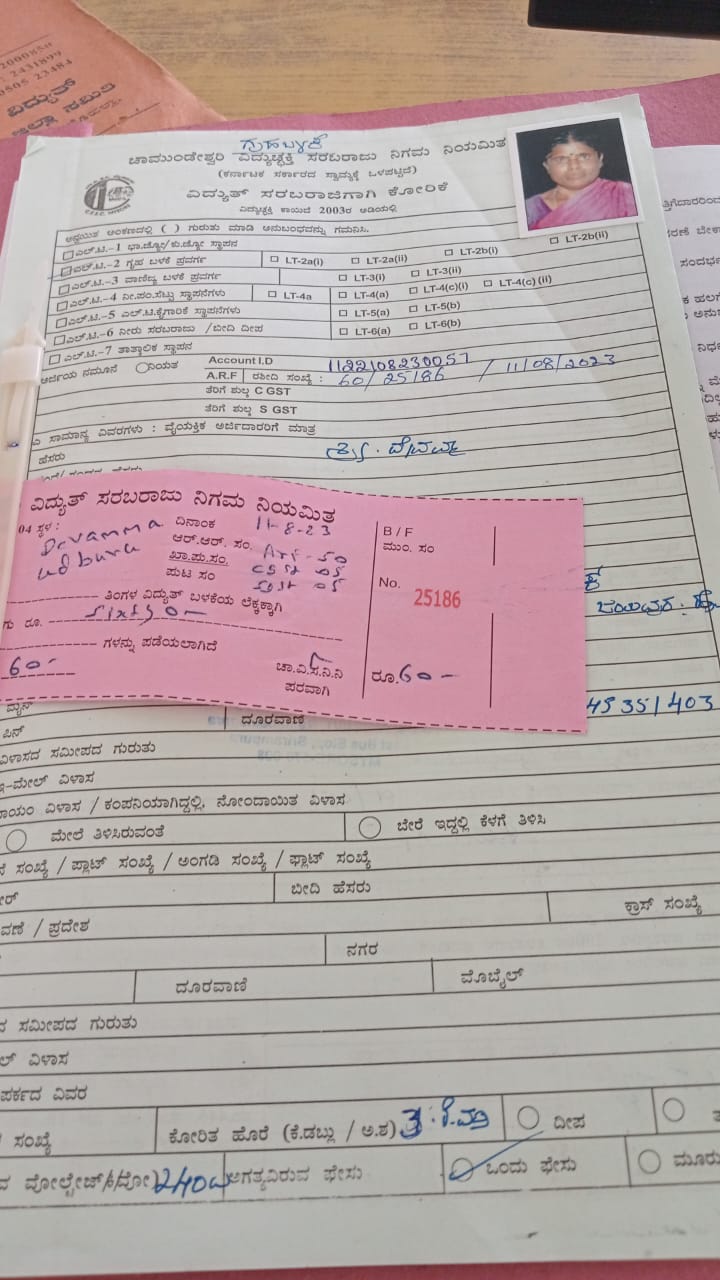 2000850
2431899
0505 23484
ವಿದ್ಯುತ್
ಗೃಹಬಳಕೆ
ಚಾಮುಂಡೇಶ್ವರಿ ವಿದ್ಯುಚ್ಛಕ್ತಿ ಸರಬರಾಜು ನಿಗಮ ನಿಯಮಿತ
(ಕರ್ನಾಟಕ ಸರ್ಕಾರದ ಸ್ವಾಮ್ಯಕ್ಕೆ ಒಳಪಟ್ಟಿದೆ)
ವಿದ್ಯುತ್ ಸರಬರಾಜಿಗಾಗಿ ಕೋರಿಕೆ
ವಿದ್ಯುಚ್ಛಕ್ತಿ ಕಾಯಿದೆ 2003ರ ಅಡಿಯಲ್ಲಿ
ಅನ್ವಯಿತ ಅಂಕಣದಲ್ಲಿ ( ) ಗುರುತು ಮಾಡಿ ಅನುಬಂಧವನ್ನು ಗಮನಿಸಿ.
ಎಲ್.ಟಿ.-1 ಭಾ.ಜ್ಯೋ/ಕು.ಜ್ಯೋ ಸ್ಥಾಪನ
ಎಲ್.ಟಿ.-2 ಗೃಹ ಬಳಕೆ ಪ್ರವರ್ಗ LT-2a(i) LT-2a(ii) LT-2b(i) LT-2b(ii)
ಎಲ್.ಟಿ.-3 ವಾಣಿಜ್ಯ ಬಳಕೆ ಪ್ರವರ್ಗ LT-3(i) LT-3(ii)
ಎಲ್.ಟಿ.-4 ನೀ.ಪಂ.ಸೆಟ್ಟು ಸ್ಥಾಪನೆಗಳು LT-4a LT-4(a) LT-4(c)(i) LT-4(c) (ii)
ಎಲ್.ಟಿ.-5 ಎಲ್.ಟಿ.ಕೈಗಾರಿಕೆ ಸ್ಥಾಪನೆಗಳು LT-5(a) LT-5(b)
ಎಲ್.ಟಿ.-6 ನೀರು ಸರಬರಾಜು /ಬೀದಿ ದೀಪ LT-6(a) LT-6(b)
ಎಲ್.ಟಿ.-7 ತಾತ್ಕಾಲಿಕ ಸ್ಥಾಪನ
ಅರ್ಜಿಯ ನಮೂನೆ ನಿಯತ Account I.D 1122108230057
A.R.F ರಶೀದಿ ಸಂಖ್ಯೆ : 60/25186 / 11/08/2023
ತೆರಿಗೆ ಶುಲ್ಕ C GST
ತೆರಿಗೆ ಶುಲ್ಕ S GST
ಸಾಮಾನ್ಯ ವಿವರಗಳು : ವೈಯಕ್ತಿಕ ಅರ್ಜಿದಾರರಿಗೆ ಮಾತ್ರ
ಹೆಸರು
ವಿದ್ಯುತ್ ಸರಬರಾಜು ನಿಗಮ ನಿಯಮಿತ
04 ಸ್ಥಳ : Devamma ದಿನಾಂಕ 11-8-23 B / F
udburu ಆರ್.ಆರ್. ಸಂ. ARF-50 ಮುಂ. ಸಂ
ಖಾ.ಪು.ಸಂ. CGST 05
ಪುಟ ಸಂ SGST 05 No. 25186
ತಿಂಗಳ ವಿದ್ಯುತ್ ಬಳಕೆಯ ಲೆಕ್ಕಕ್ಕಾಗಿ
ರೂ. Sixty 0-
ಗಳನ್ನು ಪಡೆಯಲಾಗಿದೆ
60- ಚಾ.ವಿ.ಸ.ನಿ.ನಿ ರೂ.60-
ಪರವಾಗಿ
ಜಯಪುರ: ಹೋ
45351403
ದೂರವಾಣಿ
ಪಿನ್
ವಿಳಾಸದ ಸಮೀಪದ ಗುರುತು
ಇ-ಮೇಲ್ ವಿಳಾಸ
ಾಯಂ ವಿಳಾಸ / ಕಂಪನಿಯಾಗಿದ್ದಲ್ಲಿ, ನೋಂದಾಯಿತ ವಿಳಾಸ
ಮೇಲೆ ತಿಳಿಸಿರುವಂತೆ ಬೇರೆ ಇದ್ದಲ್ಲಿ ಕೆಳಗೆ ತಿಳಿಸಿ
ಸಂಖ್ಯೆ / ಪ್ಲಾಟ್ ಸಂಖ್ಯೆ / ಅಂಗಡಿ ಸಂಖ್ಯೆ / ಫ್ಲಾಟ್ ಸಂಖ್ಯೆ
ಬೀದಿ ಹೆಸರು
ವಣೆ / ಪ್ರದೇಶ ಕ್ರಾಸ್ ಸಂಖ್ಯೆ
ನಗರ
ದೂರವಾಣಿ ಮೊಬೈಲ್
ದ ಸಮೀಪದ ಗುರುತು
ಲ್ ವಿಳಾಸ
ಪರ್ಕದ ವಿವರ
ಸಂಖ್ಯೆ ಕೋರಿತ ಹೊರೆ (ಕೆ.ಡಬ್ಲು / ಅ.ಶ) ದೀಪ
ವೋಲ್ಟೇಜ್ 240 ಅಗತ್ಯವಿರುವ ಫೇಸು ಒಂದು ಫೇಸು ಮೂರು